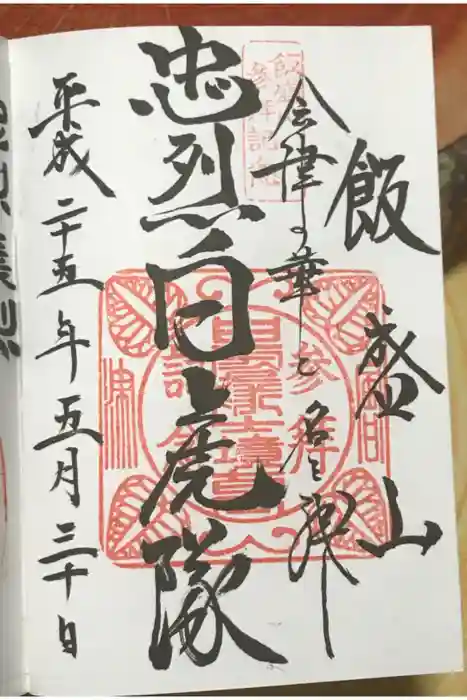 飯盛山
会津の華と名
忠烈白虎隊
平成二十五年五月三十日
飯盛山
参拝記念
参拝
記念